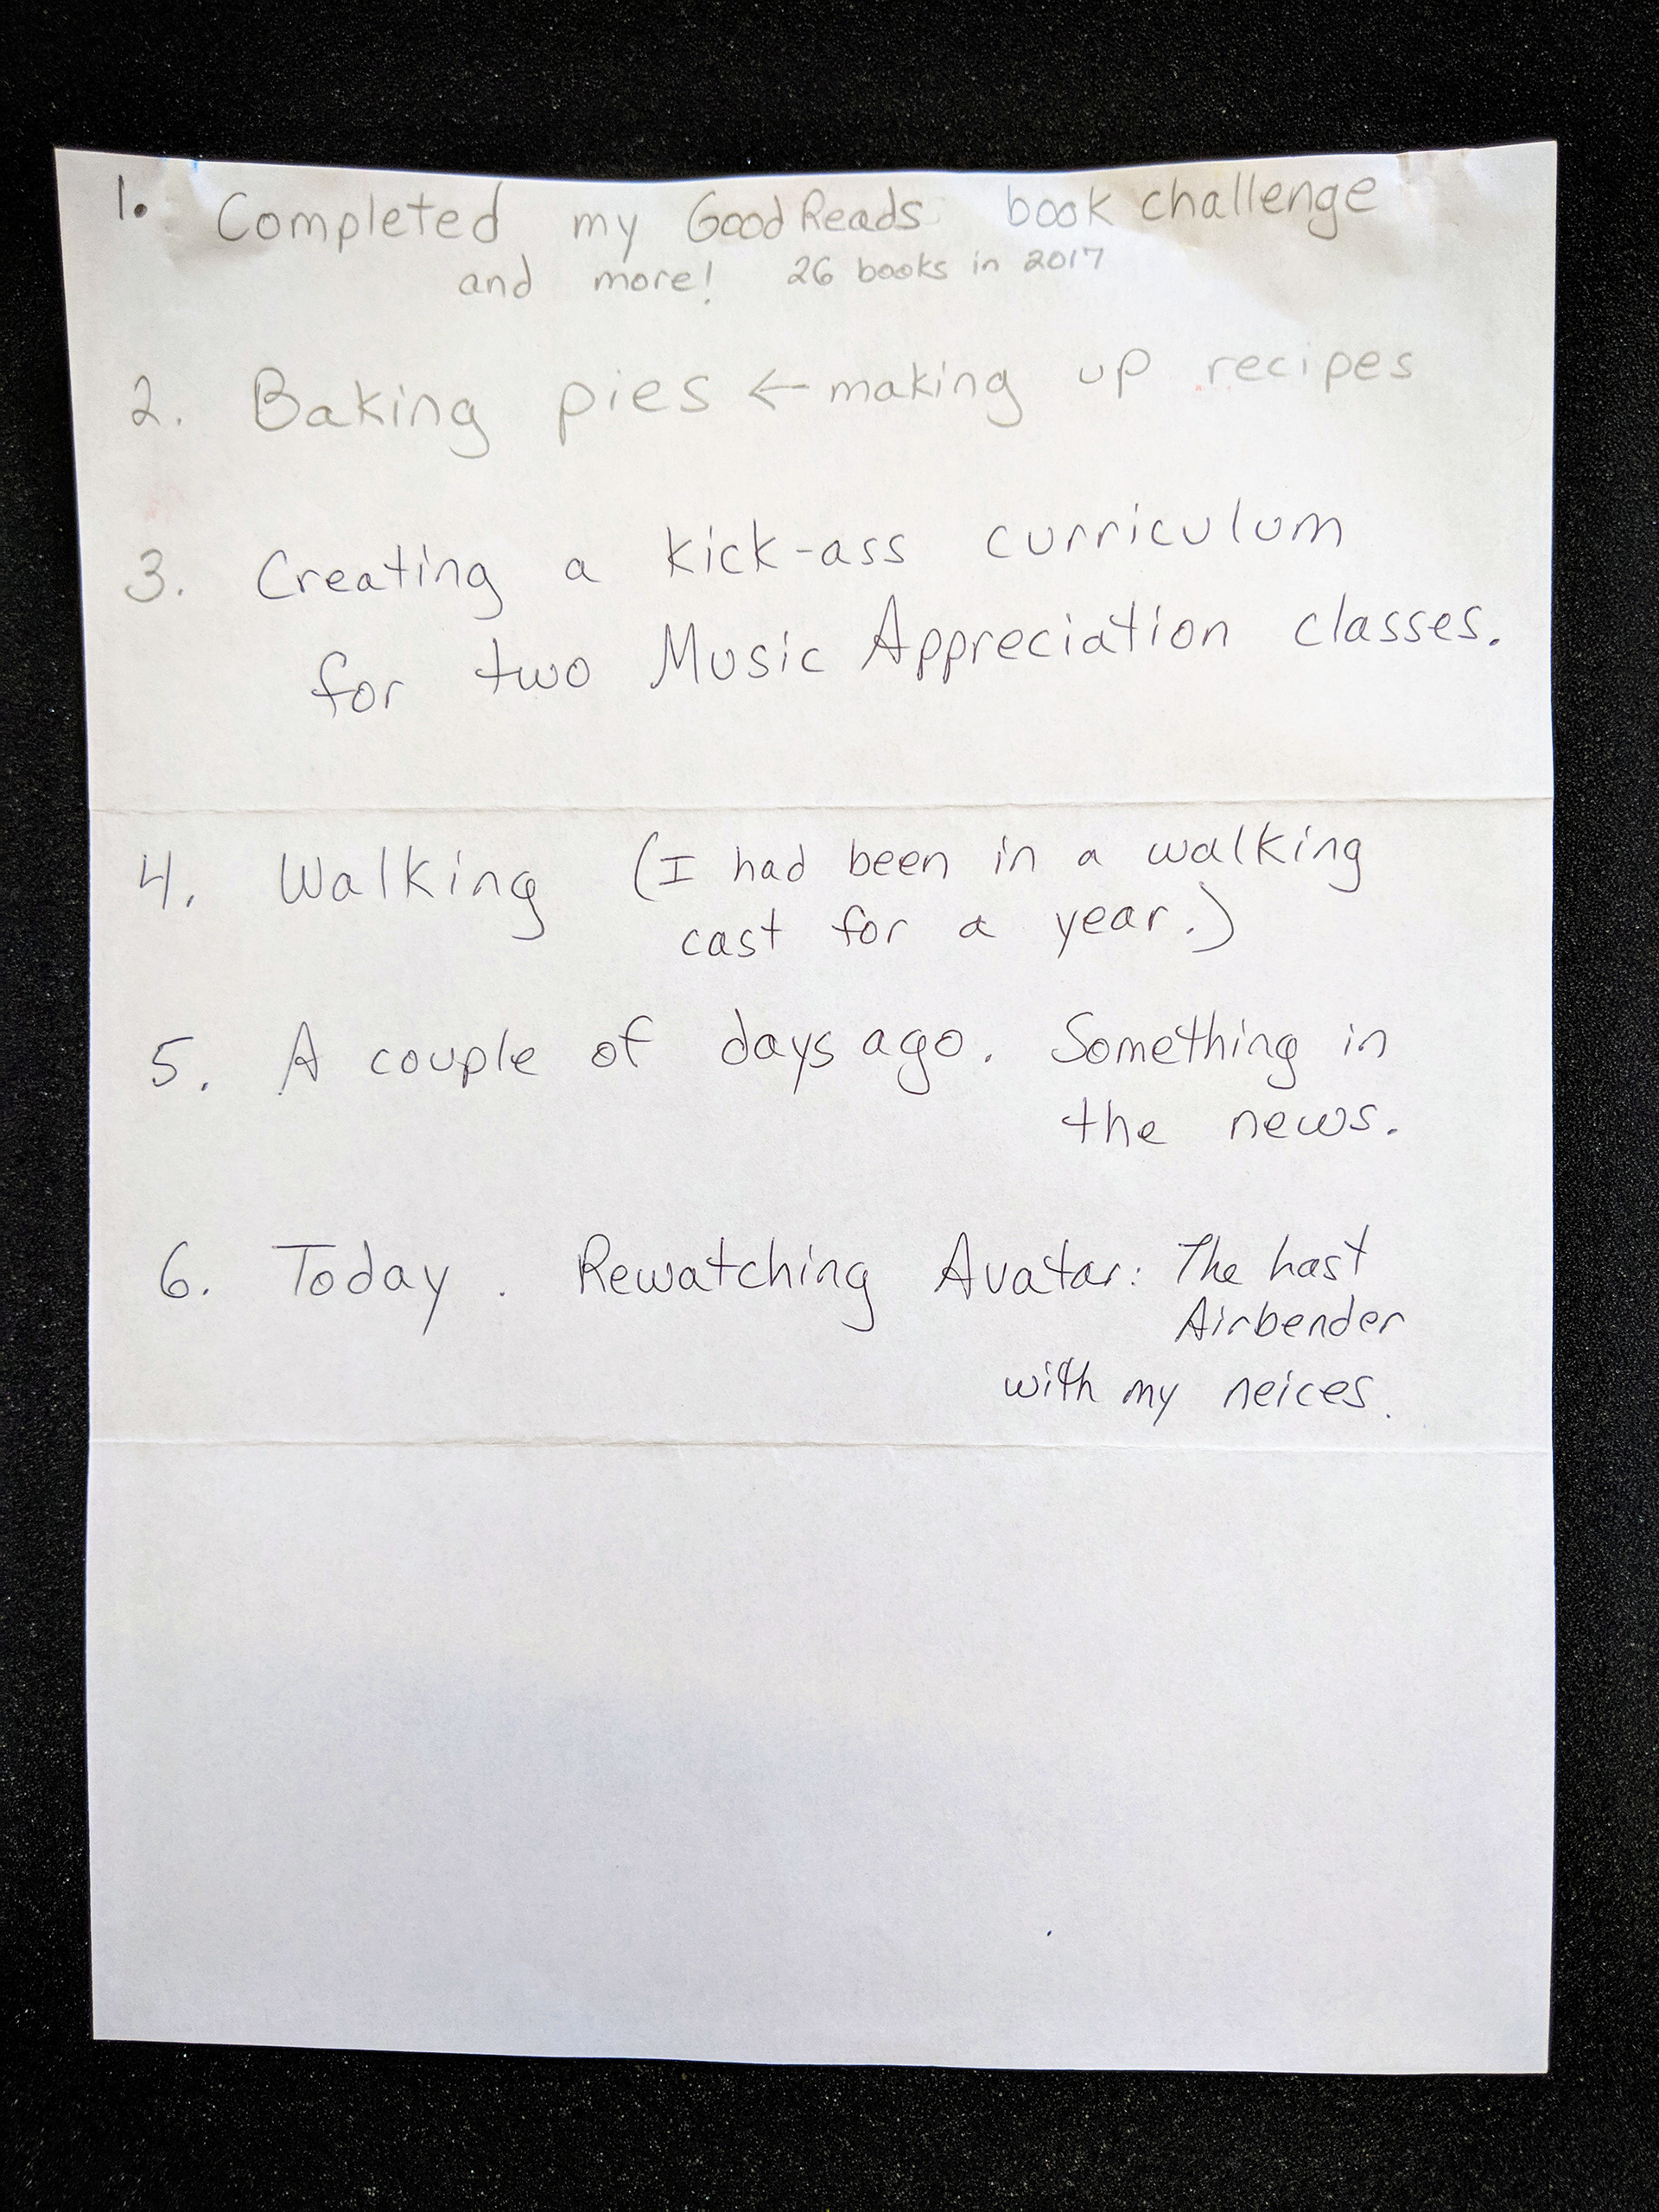 1. Completed my GoodReads book challenge
and more! 26 books in 2017
2. Baking pies ← making up recipes
3. Creating a kick-ass curriculum
for two Music Appreciation classes.
4. Walking (I had been in a walking
cast for a year.)
5. A couple of days ago. Something in
the news.
6. Today. Rewatching Avatar: The Last
Airbender
with my neices.